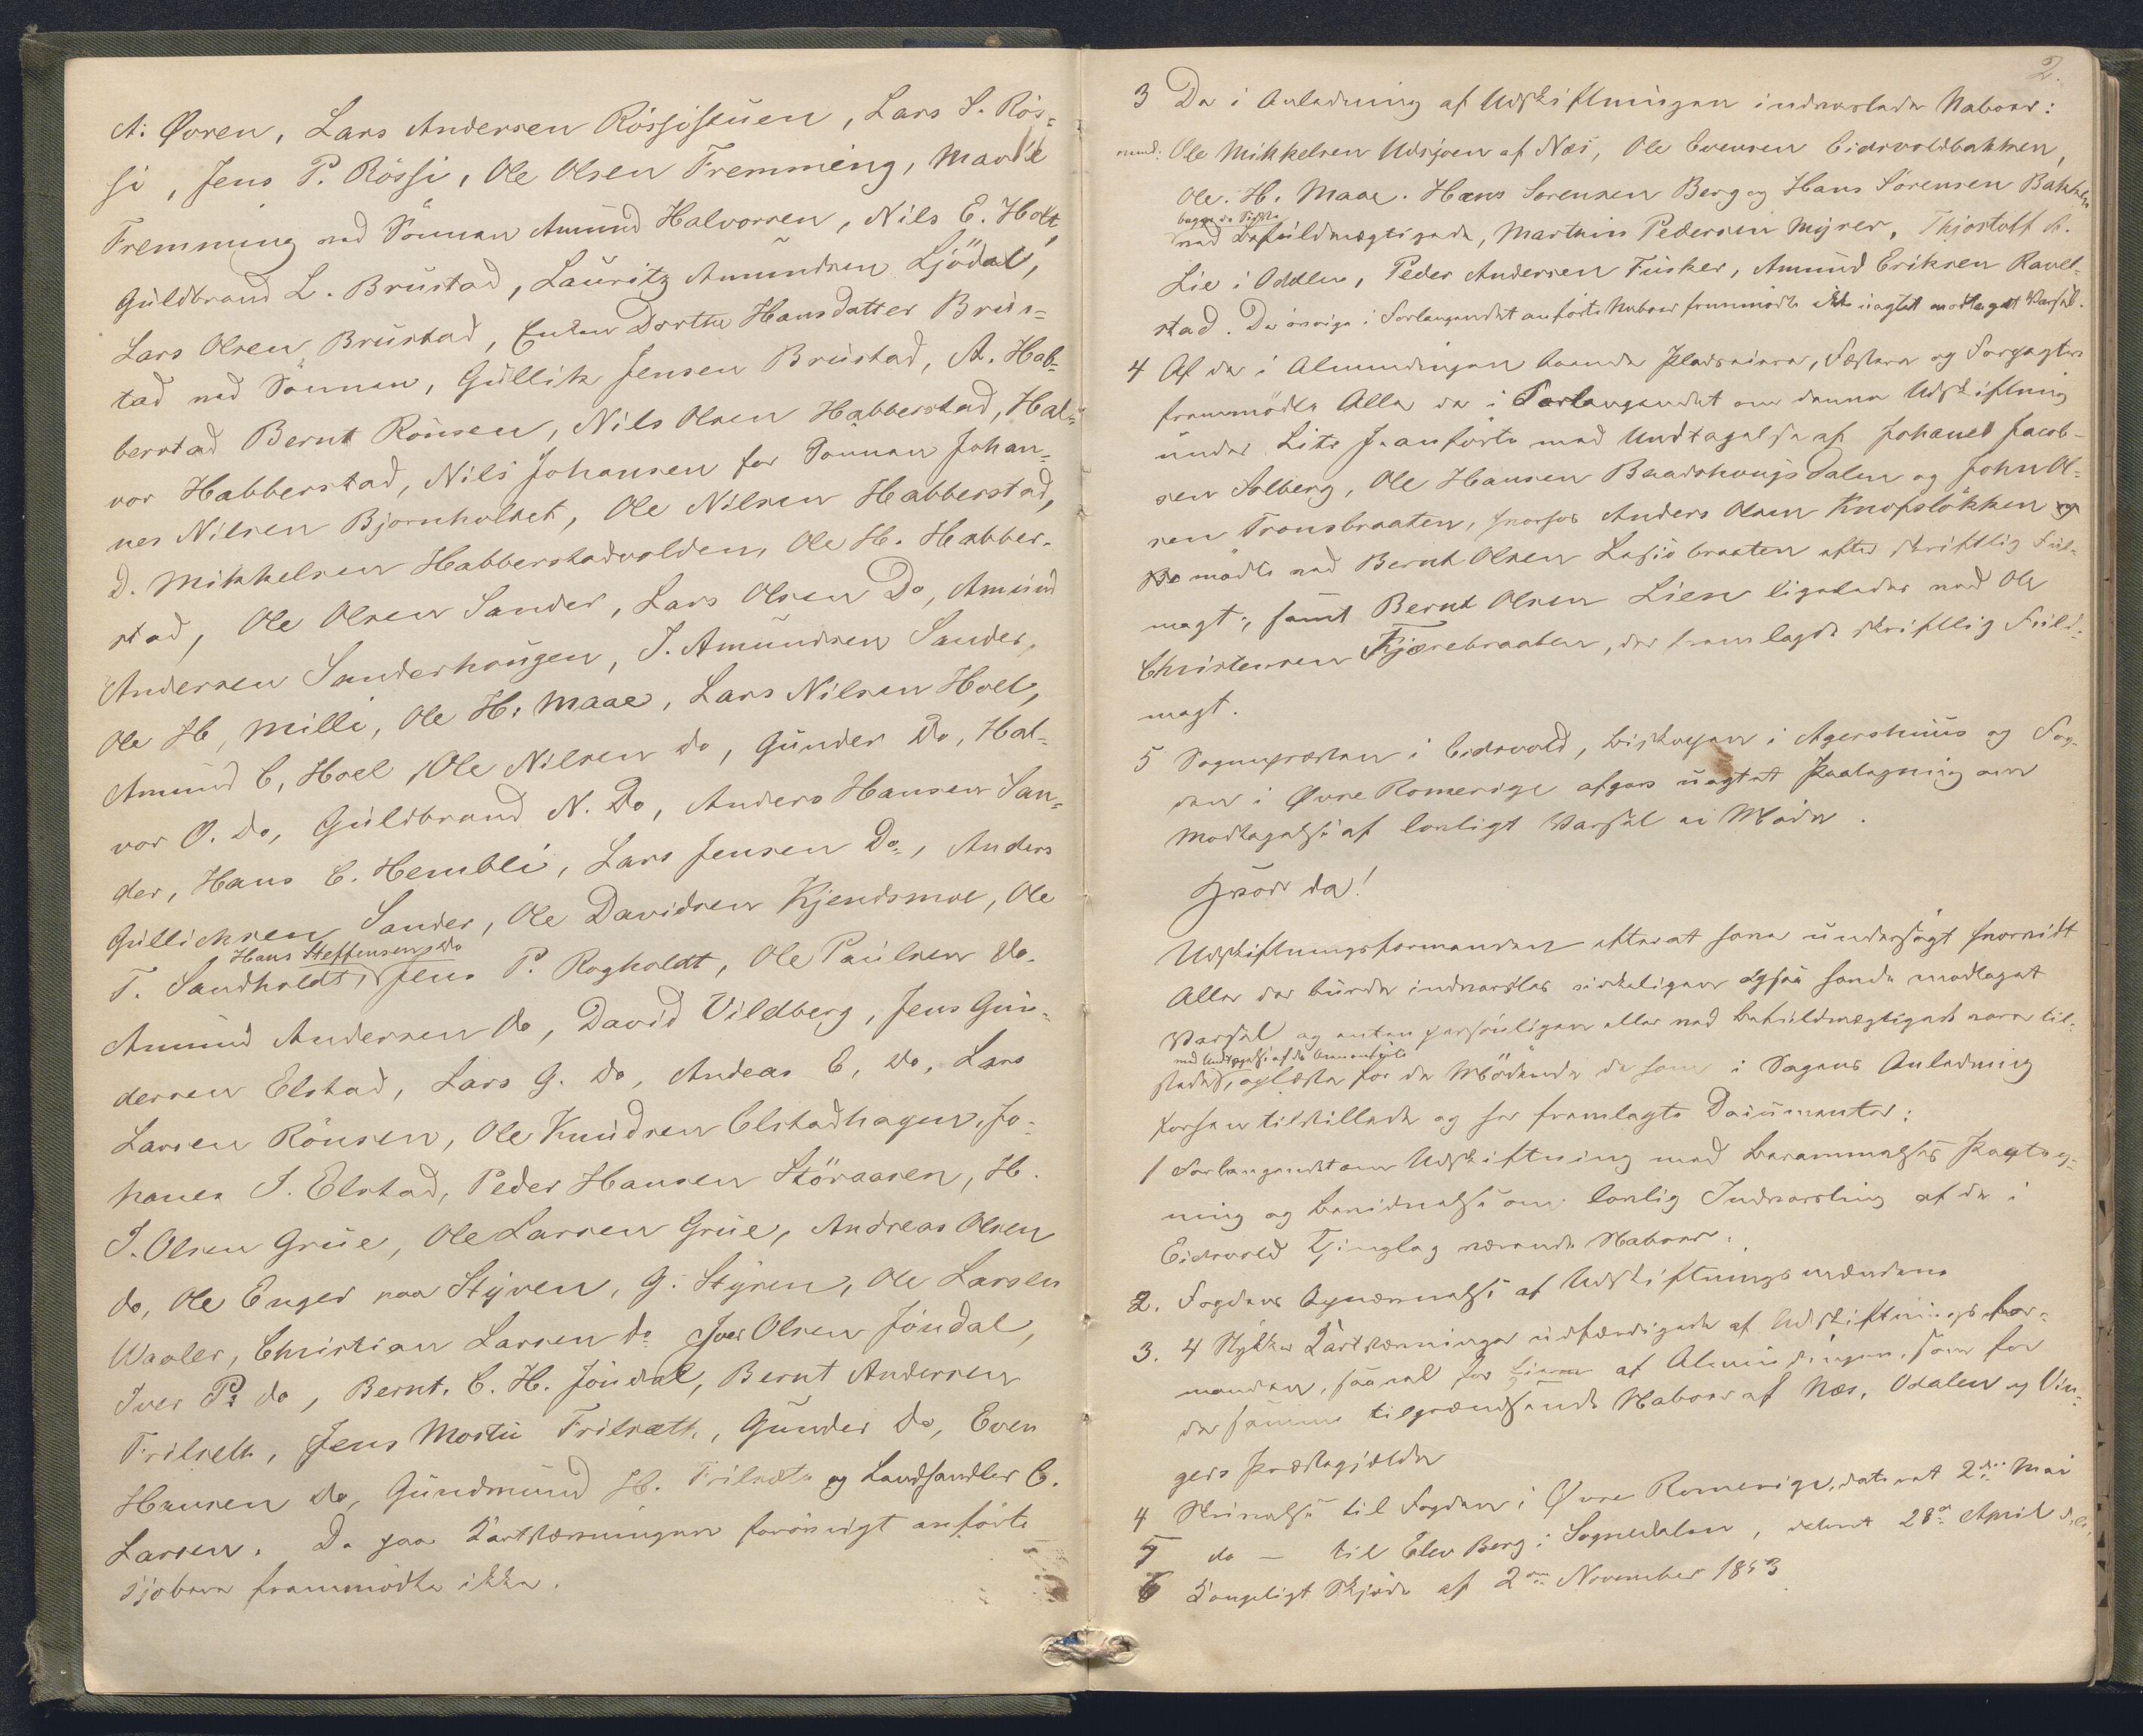 A. Øvren, Lars Andersen Rössistuen, Lars S. Rös=
si, Jens P. Rössi, Ole Olsen Fremming, Marie
Fremming ved Sönnen Amund Halvorsen, Nils E. Holt,
Guldbrand L. Brustad, Lauritz Amundsen Ljödal,
Lars Olsen Brustad, Enken Dorthe Hansdatter Brus=
tad ved Sönnen, Gullik Jensen Brustad, A. Hab=
berstad Bernt Rönsen, Nils Olsen Habberstad, Hal=
vor Habberstad, Nils Johansen for Sönnen Johan=
nes Nilsen Bjørnholtet, Ole Nilsen Habberstad,
D. Mikkelsen Habberstadvolden, Ole H. Habber=
stad, Ole Olsen Sander, Lars Olsen Do, Amund
Andersen Sanderhaugen, J. Amundsen Sander,
Ole H, Milli, Ole H: Maae, Lars Nilsen Hoel,
Amund C, Hoel, Ole Nilsen do, Gunder Do, Hal=
vor O. do, Guldbrand N. Do, Anders Hansen San=
der, Hans C. Hembli, Lars Jensen Do, Anders
Gullichsen Sander, Ole Davidsen Kjendsmoe, Ole
Hans Steffensen do
T. Sandholdt, Jens P. Rogholdt, Ole Paulsen do.
Amund Andersen do, David Vildberg, Jens Gun=
dersen Elstad, Lars G. do, Andeas C, do, Lars
Larsen Rönsen, Ole Knudsen Elstadhagen, Jo=
hanes J. Elstad, Peder Hansen Störaasen, H.
J. Olsen Grue, Ole Larsen Grue, Andreas Olsen
do, Ole Enger paa Styren, G. Styren, Ole Larsen
Waaler, Christian Larsen do Iver Olsen Jöndal,
Iver P: do, Bernt. C. H. Jöndal, Bernt Andersen
Frilseth, Jens Mostu Frilsæth, Gunder do, Even
Hansen do, Gundmund H. Frilsæth og Landhandler C.
Larsen. De paa Kartskæmingen forövrigt anförte
Kjöbere fremmödte ikke.
2.
3 De i Anledning af Udskiftningen indvarslede Naboer:
Ole Mikkelsen Udsjoen af Næs, Ole Evensen Eidsvoldbakken,
Ole. H. Maae. Hans Sørensen Berg og Hans Sørensen Bakken
begge de sidste
ved Befuldmægtigede, Marthin Pedersen Myrer, Thjostolf A.
Lie i Odalen, Peder Andersen Fusker, Amund Eriksen Ravel=
stad. De övrige i Forlangendet anförte Naboer fremmödte ikke uagtet modtaget Varsel.
4 Af de i Almindingen boende Pladseiere, Fæstere og Forpagtere
fremmödte Alle de i Forlangendet om denne Udskiftning
under Lit. J anførte med Undtagelse af Johanes Jacob=
sen Solberg, Ole Hansen Baadshaugsdalen og John Ol=
sen Tronsbraaten, hvorfor Anders Olsen Knofslökken
mödte ved Bernt Olsen Lasiebraaten efter skriftlig Ful=
magt; samt Bernt Olsen Lien ligeledes ved Ole
Christensen Kjærebraaten, der fremlagde skriftlig Fuld=
magt.
5 Sognepræsten i Eidsvold, Biskopen i Agershuus og Fog=
den i Øvre Romerige afgav uagtet Paategning om
Modtagelse af lovligt Varsel ei Möde.
Hvor da!
Udskiftningsformanden efterat have undersögt hvorvidt
Alle der burde indvarsles virkeligen ogsaa havde modtaget
Varsel og enten personligen eller ved Befuldmægtigede vare til=
med Undtagelse af de Ovenanførte
stede, oplæste for de Mödende de ham i Sagens Anledning
forhen tilstillede og her fremlagte Documenter:
1 Forlangendet om Udskiftning med Berammelses Paateg=
ning og Bevidnelse om lovlig Indvarsling af de i
Eidsvold Thinglag værende Naboer.
2. Fogdens Opnævnelse af Udskiftningsmændene
3. 4 Stykker Kartskæminger udfærdigede af Udskiftningsfor=
manden, saavel for Eierne af Almindingen, som for
de samme tilgrændsende Naboer af Næs, Odalen og Vin=
gers Præstegjælde
4 Skrivelse til Fogden i Øvre Romerige, dateret 2den Mai
5 do — til Elev Berg i Sognedalen, dateret 28de April d.A.
6 Kongeligt Skjøde af 2den November 1853